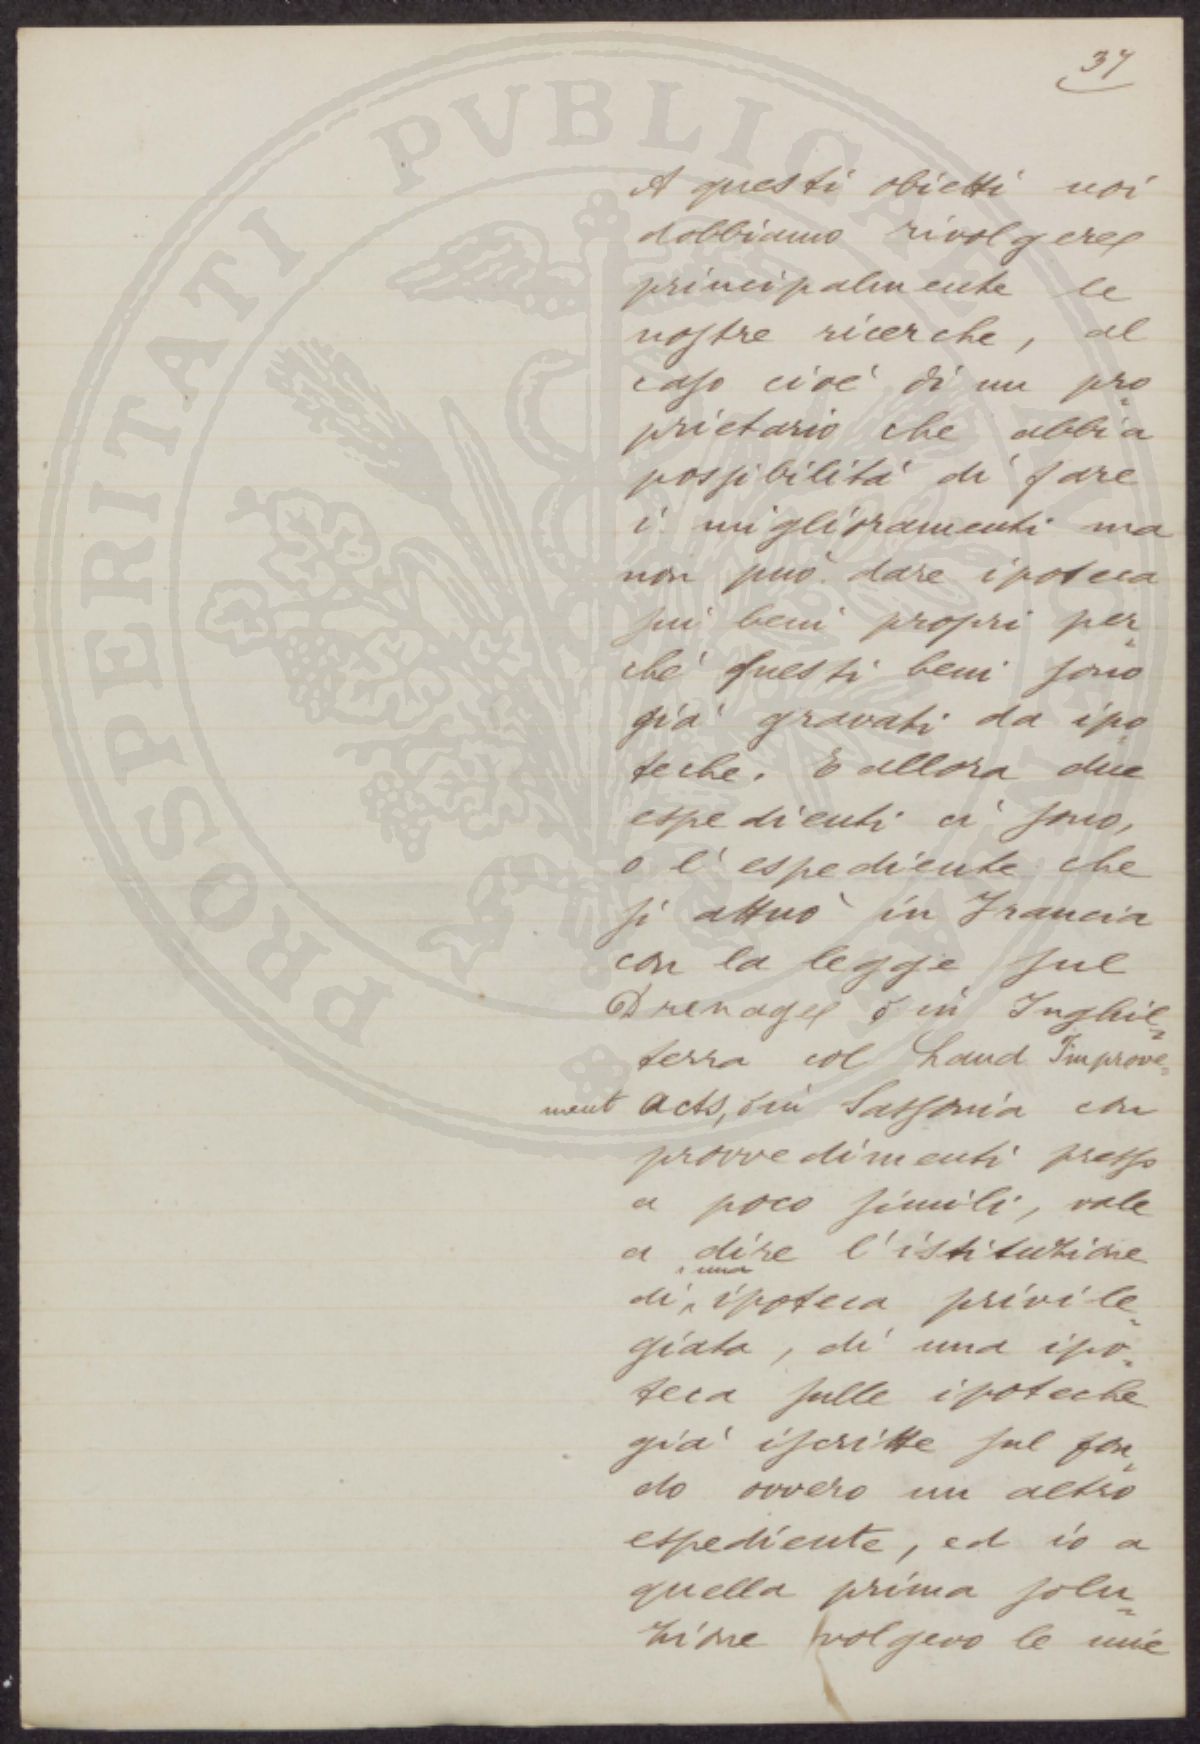 37
A questi obietti noi
dobbiamo rivolgere
principalmente le
nostre ricerche, al
caso cioè di un pro=
prietario che abbia
possibilità di fare
i miglioramenti ma
non può dare ipoteca
sui beni propri per=
chè questi beni sono
già gravati da ipo=
teche. E allora due
espedienti ci sono,
o l'espediente che
si attuò in Francia
con la legge sul
Drenage o in Inghil=
terra col Land Improve=
ment Acts, o in Sassonia con
provvedimenti presso
a poco simili, vale
a dire l'istituzione
di una ipoteca privile=
giata, di una ipo=
teca sulle ipoteche
già iscritte sul fon=
do ovvero un altro
espediente, ed io a
quella prima solu=
zione volgevo le mie
PROSPERITATI PVBLICAE AVGENDAE